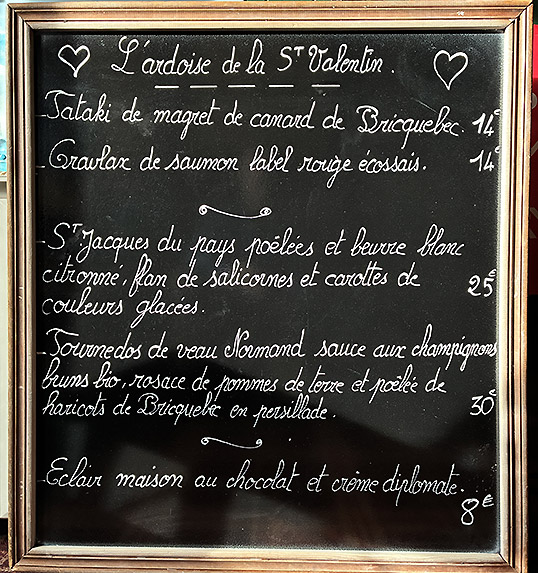 L'ardoise de la St Valentin.
- Tataki de magret de canard de Bricquebec. 14€
- Gravlax de saumon label rouge écossais. 14€
- St Jacques du pays poêlées et beurre blanc
citronné, flan de salicornes et carottes de 25€
couleurs glacées.
- Tournedos de veau Normand sauce aux champignons
bruns bio, rosace de pommes de terre et poêlée de
haricots de Bricquebec en persillade. 30€
- Eclair maison au chocolat et crème diplomate.
8€